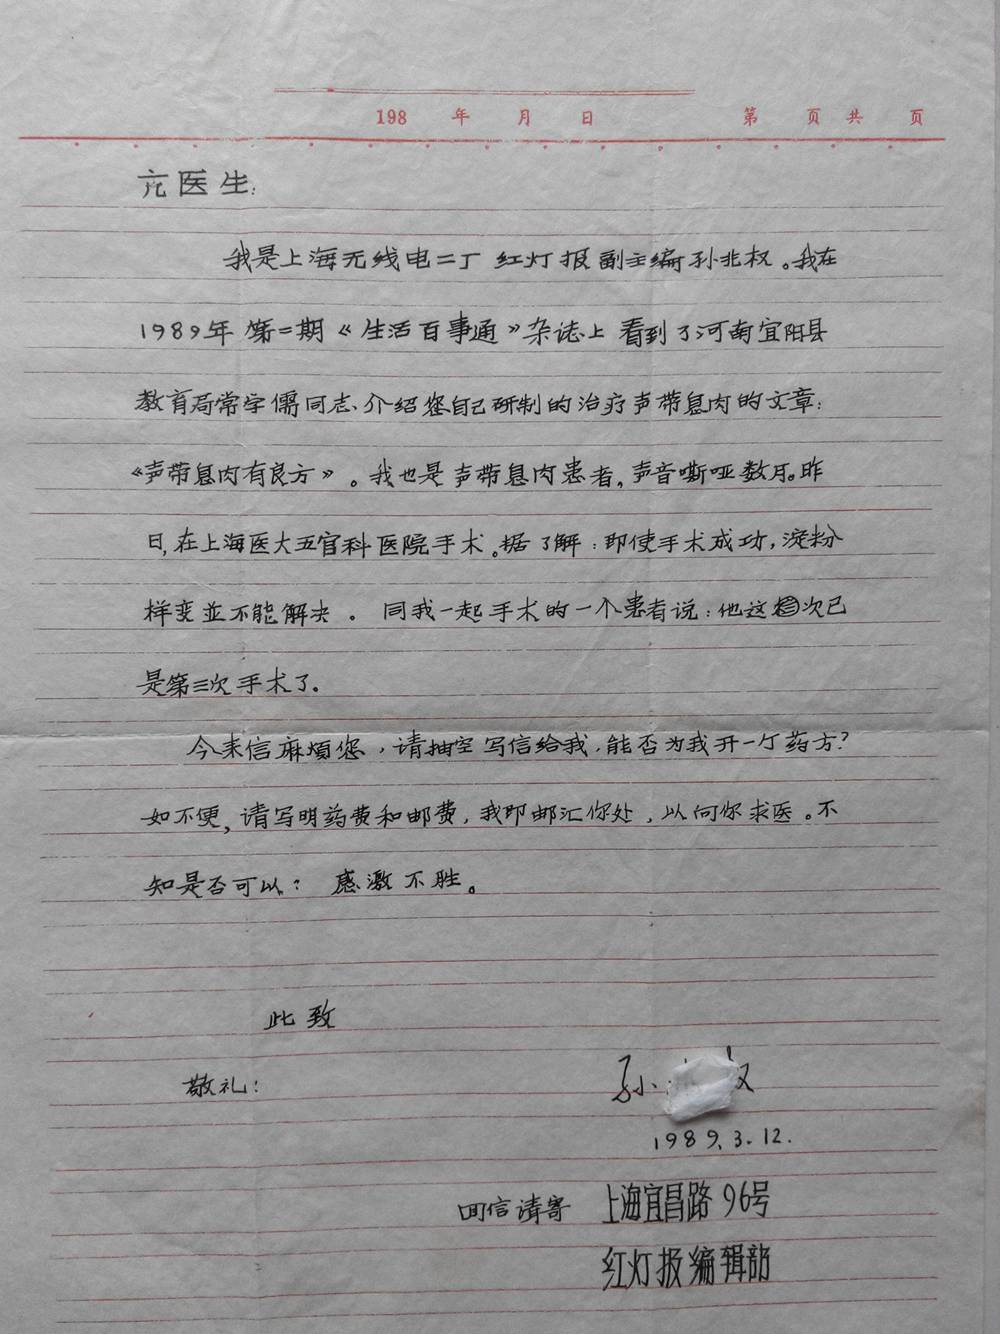 198 年 月 日 第 页共 页
亢医生:
我是上海无线电二厂 红灯报副主编孙兆权。我在
1989年 第二期《生活百事通》杂誌上 看到了河南宜阳县
教育局常学儒同志、介绍您自己研制的治疗声带息肉的文章:
《声带息肉有良方》。我也是声带息肉患者,声音嘶哑数月。昨
日,在上海医大五官科医院手术。据了解:即使手术成功,淀粉
样变並不能解决。同我一起手术的一个患者说:他这次已
是第三次手术了。
今来信麻煩您,请抽空写信给我,能否为我开一个药方?
如不便,请写明药费和邮费,我即邮汇你处,以向你求医。不
知是否可以? 感激不胜。
此致
敬礼!
孙
1989.3.12.
回信请寄 上海宜昌路96号
红灯报编辑部